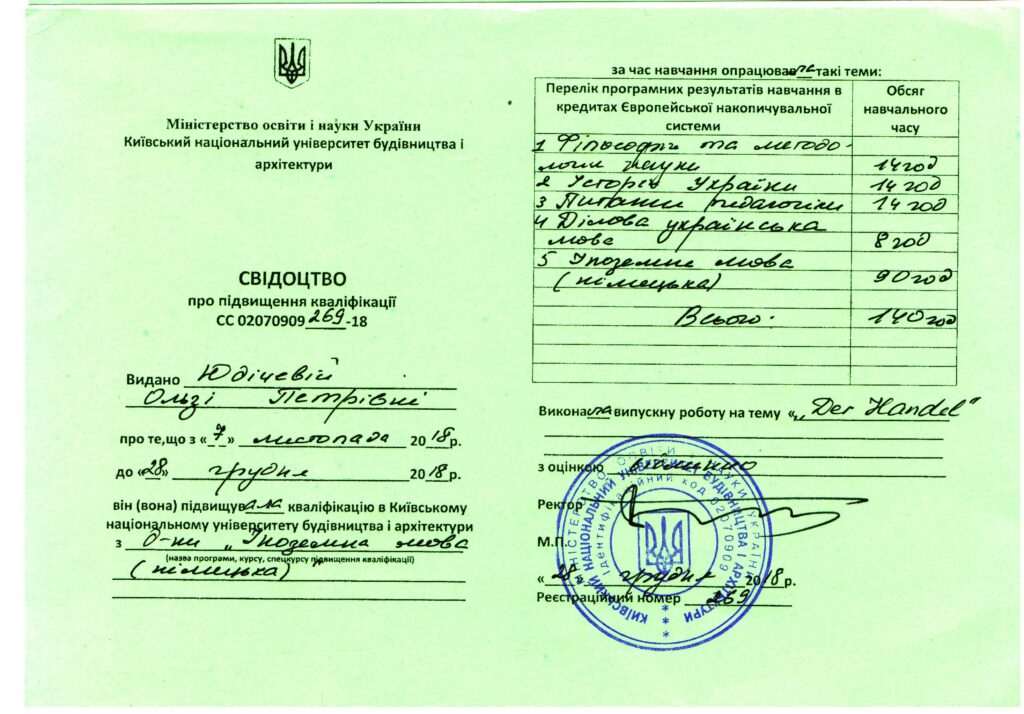 Міністерство освіти і науки України
Київський національний університет будівництва і
архітектури
СВІДОЦТВО
про підвищення кваліфікації
СС 02070909 269-18
Видано Юдічевій
Ользі Петрівні
про те,що з «7» листопада 2018р.
до «28» грудня 2018р.
він (вона) підвищувала кваліфікацію в Київському
національному університету будівництва і архітектури
з д-ни „Іноземна мова
(назва програми, курсу, спецкурсу підвищення кваліфікації)
(німецька)"
за час навчання опрацювала такі теми:
Перелік програмних результатів навчання в
кредитах Європейської накопичувальної
системи
Обсяг
навчального
часу
1 Філософія та методо-
логія науки 14 год
2 Історія України 14 год
3 Питання педагогіки 14 год
4 Ділова українська
мова 8 год
5 Іноземна мова
(німецька) 90 год
Всього: 140 год
Виконала випускну роботу на тему «„Der Handel"
з оцінкою відмінно
Ректор
М.П.
«28» грудня 2018р.
Реєстраційний номер 269
МІНІСТЕРСТВО ОСВІТИ І НАУКИ УКРАЇНИ
КИЇВСЬКИЙ НАЦІОНАЛЬНИЙ УНІВЕРСИТЕТ БУДІВНИЦТВА І АРХІТЕКТУРИ
Ідентифікаційний код 02070909